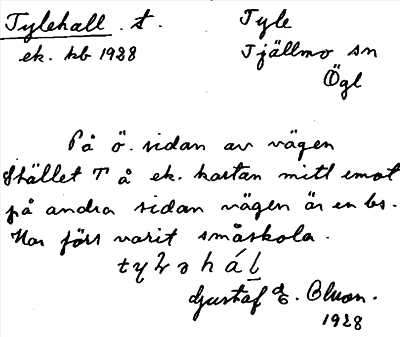 Tylehall . t. Tyle
ek. kb 1928 Tjällmo sn
Ögl
På ö. sidan av vägen
Stället T å ek. kartan mitt emot
på andra sidan vägen är en bs.
Har förr varit småskola.
Gustaf E. Olson.
1928